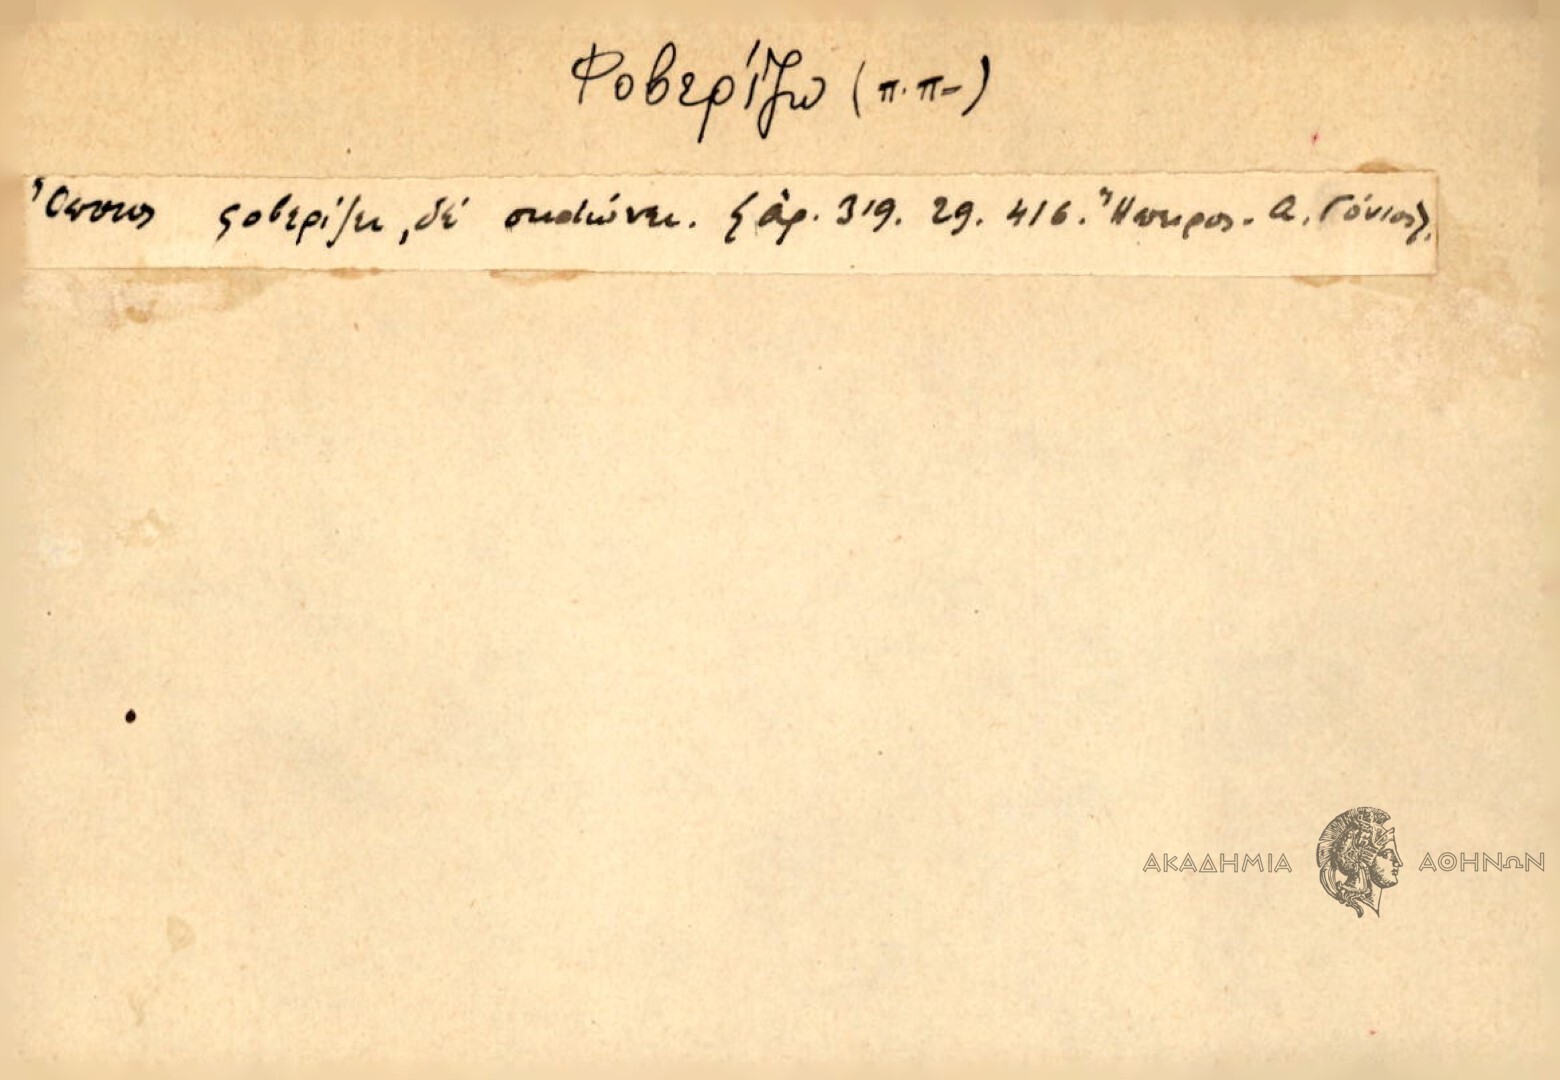 Φοβερίζω (π.π-)
Ὅποιος φοβερίζει, δέ σκοτώνει. {ἀρ. 319. 29. 416. Ἤπειρος. Α. Γόνιος}.
ΑΚΑΔΗΜΙΑ ΑΘΗΝΩΝ